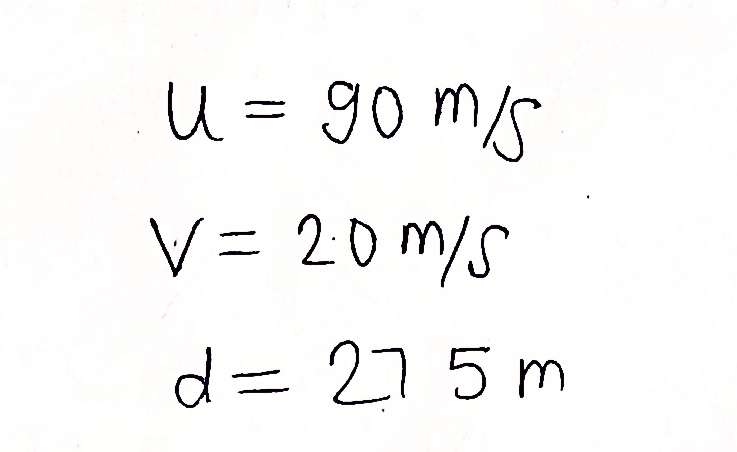 u = 90 m/s
v = 20 m/s
d = 275 m